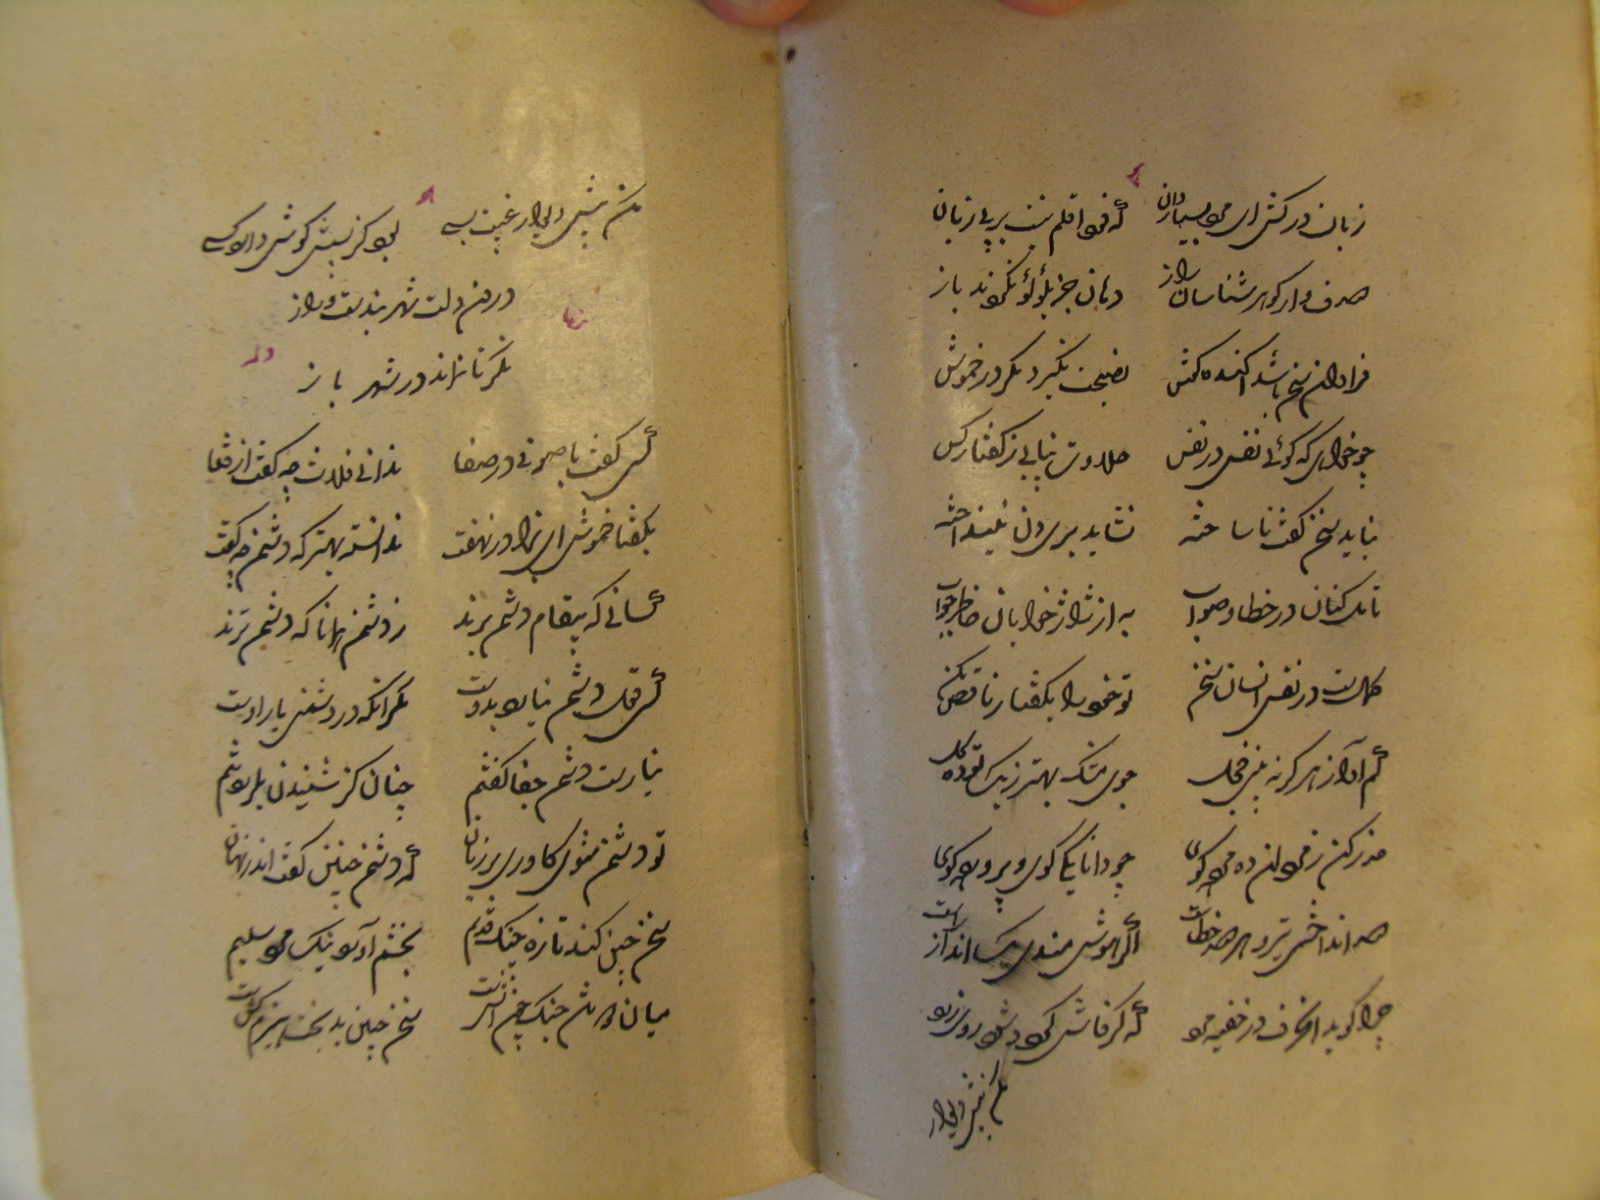 زبان درکش ای مرد بسیاردان که فردا قلم نیست بر بی زبان
صدف وار گوهر شناسان راز دهان جز بلؤلؤ نکردند باز
فراوان سخن باشد آکنده گوش نصیحت نگیرد مگر در خموش
چو خواهی که گوئی نفس در نفس حلاوت نیابی ز گفتار کس
نباید سخن گفت ناساخته نشاید بریدن نینداخته
تامل کنان در خطا و صواب به از ژاژخوایان حاضر جواب
کمالست در نفس انسان سخن تو خود را بگفتار ناقص مکن
کم آواز هرگز نه بینی خجل جوی مشک بهتر ز یک توده گل
حذر کن ز نادان ده مرده گوی چو دانا یکی گوی و پرورده گوی
صد انداختی تیر و هر صد خطاست اگر هوشمندی یک انداز راست
چرا گوید آن حرف در خفیه مرد که گر فاش گردد شود روی زرد
مکن پیش دیوار
مکن پیش دیوار غیبت بسی بود کز پسش گوش دارد کسی
درون دلت شهربندست راز
نگر تا نراند در شهر باز
کسی گفت با صوفی در صفا ندانی فلانت چه گفت از قفا
بگفتا خموش ای برادر نهفت ندانسته بهتر که دشمن چه گفت
کسانی که پیغام دشمن برند ز دشمن همانا که دشمن ترند
کسی قول دشمن نیارد بدوست مگر آنکه در دشمنی یار اوست
نیارست دشمن جفا گفتنم چنان کز شنیدن بلرزد تنم
تو دشمن تری کاوری بر زبان که دشمن چنین گفت اندر نهان
سخن چین کند تازه جنگ قدیم بخشم آورد نیک مرد سلیم
میان دو تن جنگ چون آتش است سخن چین بدبخت هیزم کش است